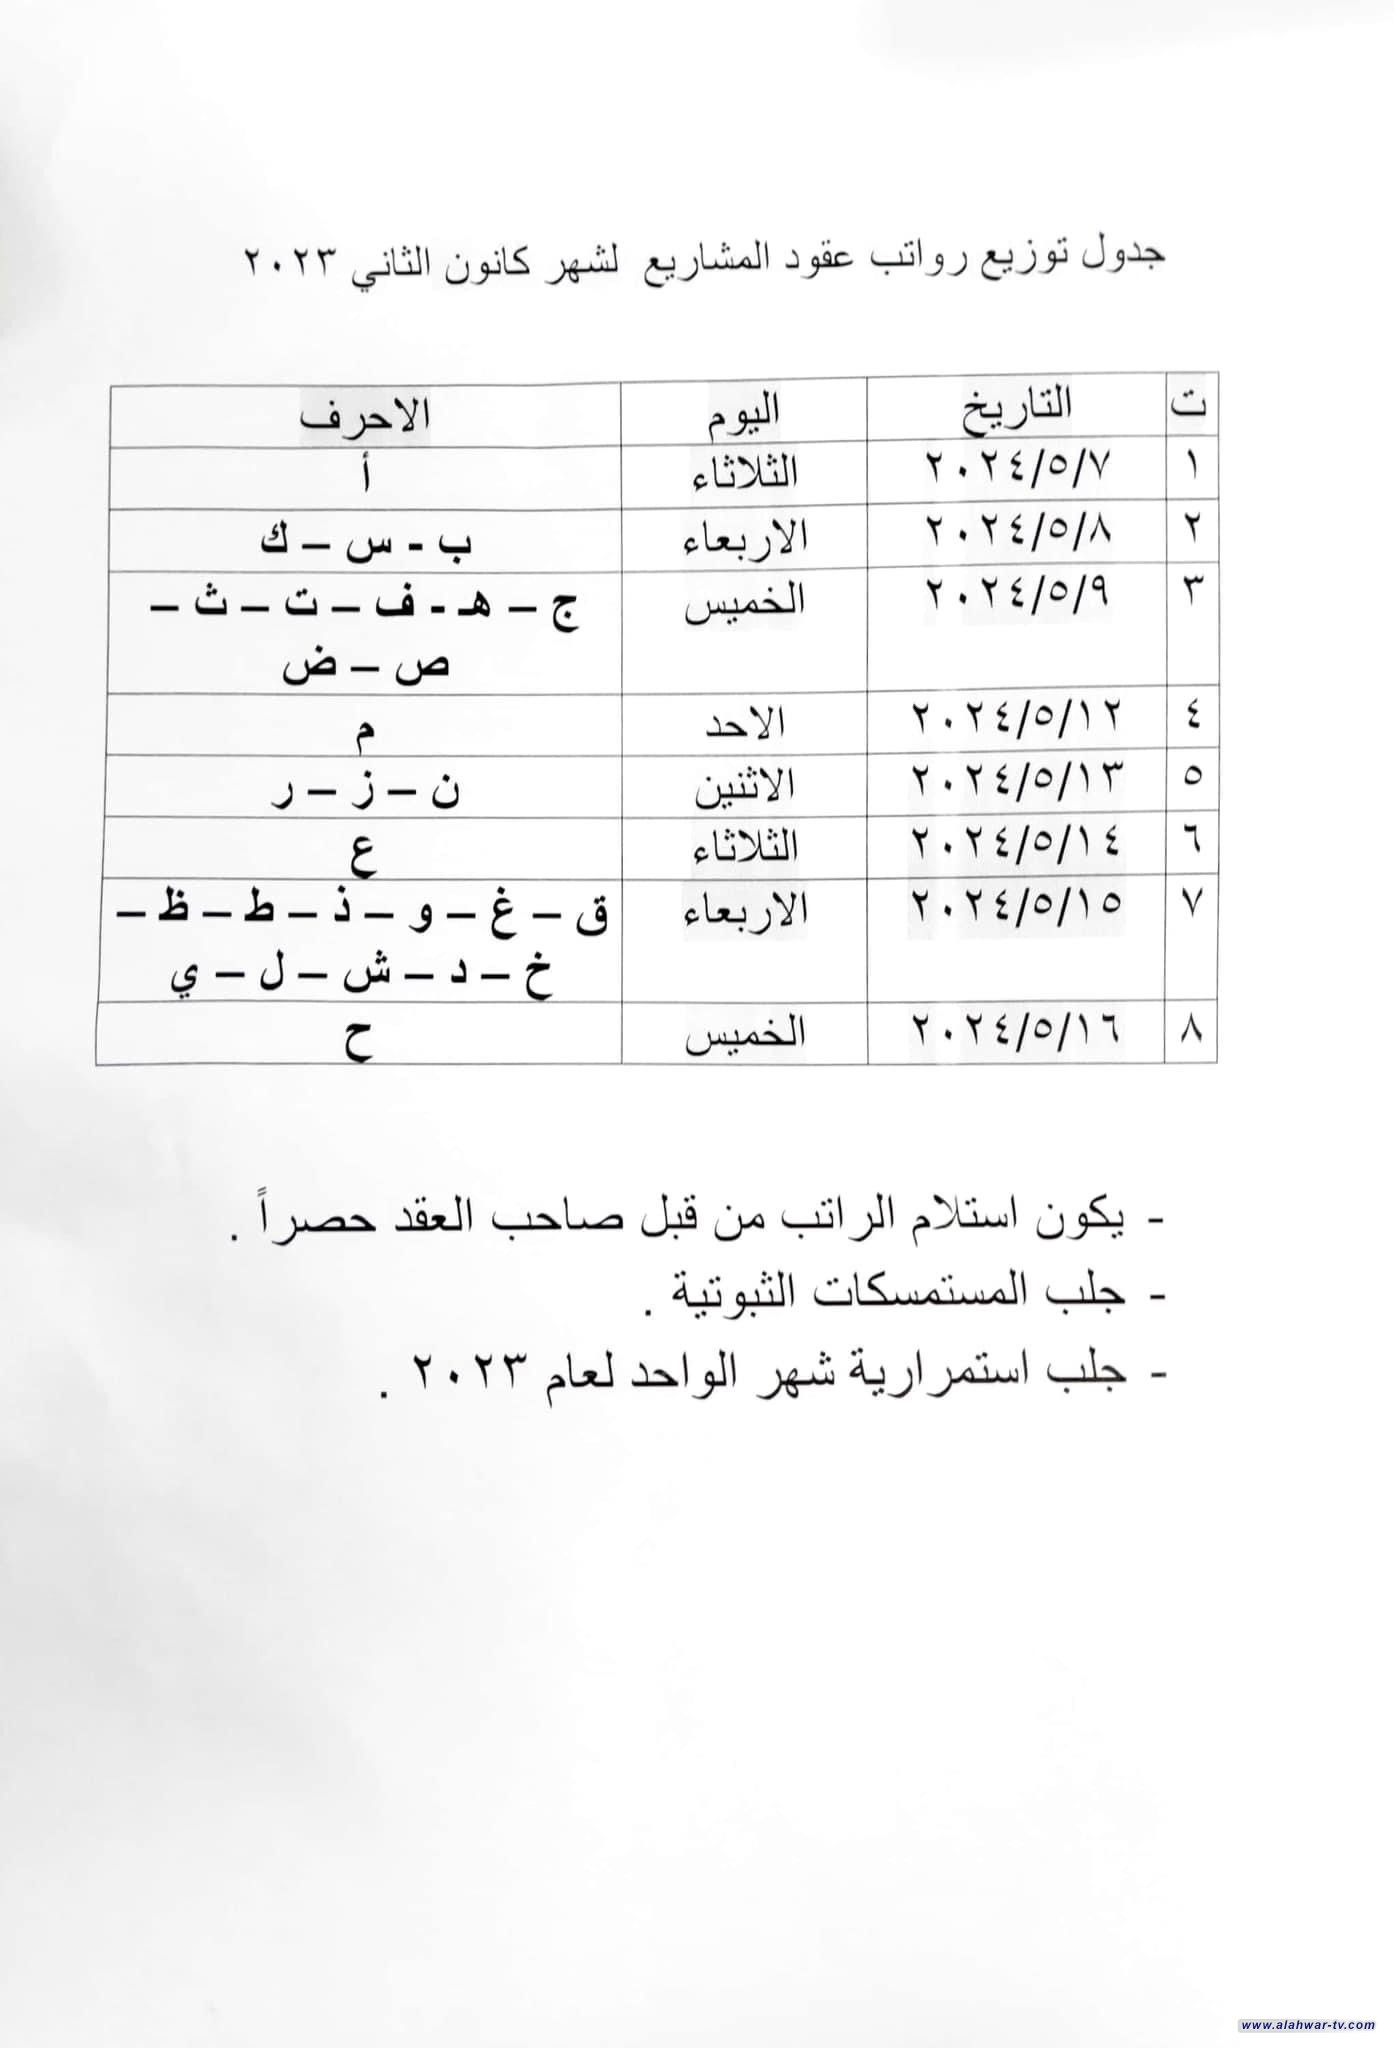 جدول توزيع رواتب عقود المشاريع لشهر كانون الثاني ٢٠٢٣
ت التاريخ اليوم الاحرف
١ ٢٠٢٤/٥/٧ الثلاثاء أ
٢ ٢٠٢٤/٥/٨ الاربعاء ب - س – ك
٣ ٢٠٢٤/٥/٩ الخميس ج – هـ - ف – ت – ث –
ص – ض
٤ ٢٠٢٤/٥/١٢ الاحد م
٥ ٢٠٢٤/٥/١٣ الاثنين ن – ز – ر
٦ ٢٠٢٤/٥/١٤ الثلاثاء ع
٧ ٢٠٢٤/٥/١٥ الاربعاء ق – غ – و – ذ – ط – ظ –
خ – د – ش – ل – ي
٨ ٢٠٢٤/٥/١٦ الخميس ح
- يكون استلام الراتب من قبل صاحب العقد حصراً .
- جلب المستمسكات الثبوتية .
- جلب استمرارية شهر الواحد لعام ٢٠٢٣ .
www.alahwar-tv.com